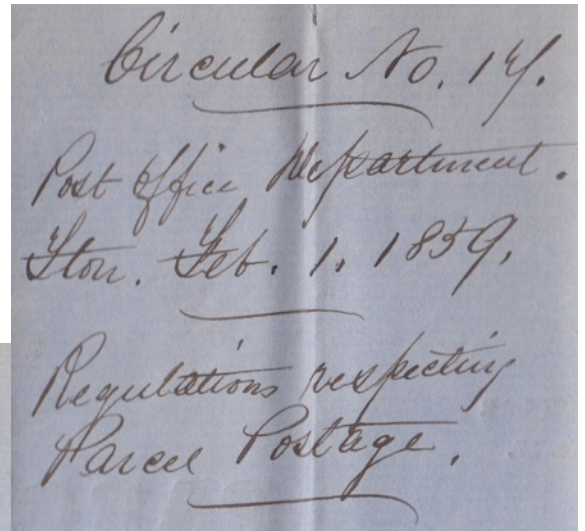 Circular No. 14.
Post Office Department.
Feb. 1. 1859,
Regulations respecting
Parcel Postage.